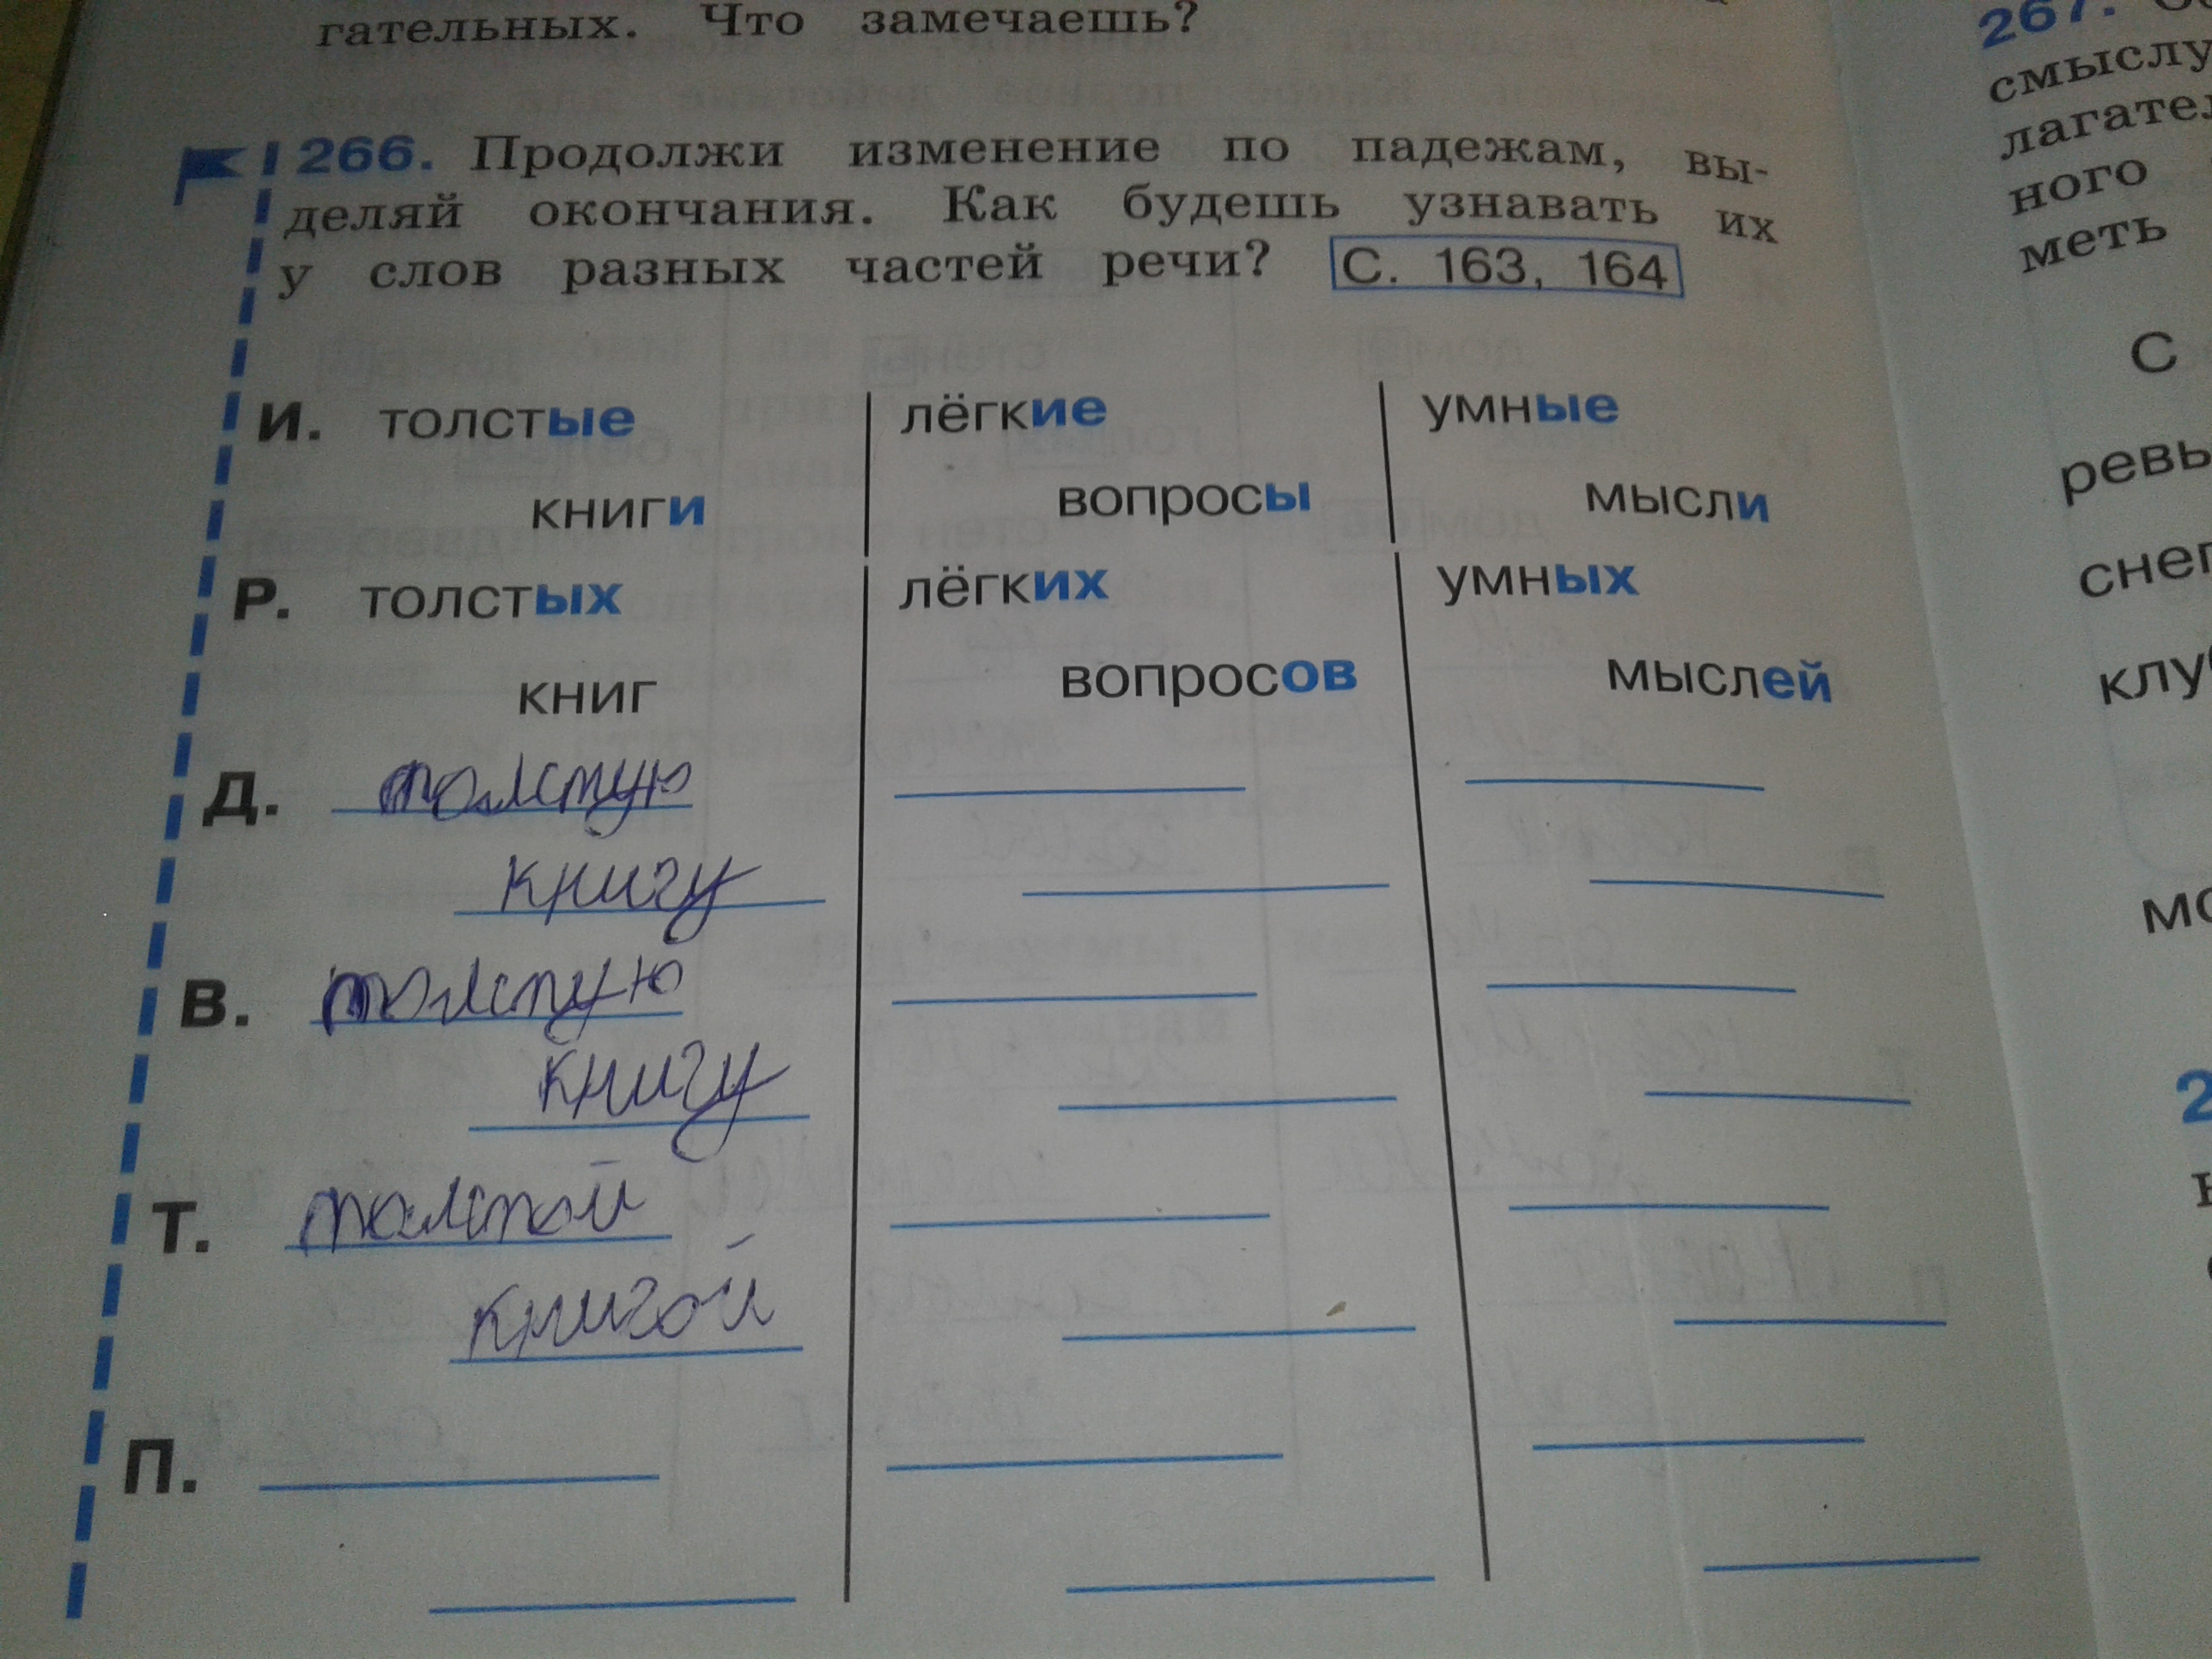 гательных. Что замечаешь?
266. Продолжи изменение по падежам, вы-
деляй окончания. Как будешь узнавать их
у слов разных частей речи? С. 163, 164
И. толстые лёгкие умные
книги вопросы мысли
Р. толстых лёгких умных
книг вопросов мыслей
Д. толстую
книгу
В. толстую
книгу
Т. толстой
книгой
П.
267.
смыслу
ного
меть
С